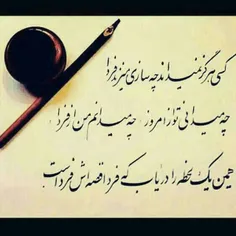 کسی هرگز نمیداند چه سازی میزند فردا
چه میدانی تو از امروز چه میدانم من از فردا
همین یک لحظه را دریاب که فردا قصه اش فرداست